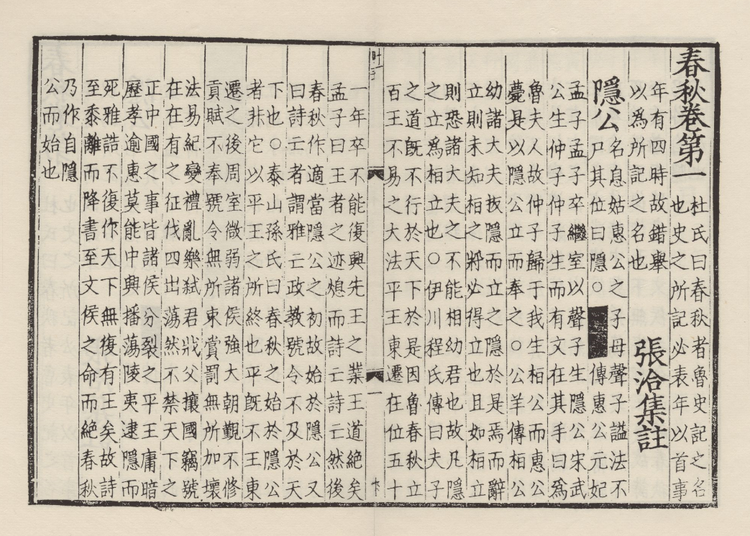 春秋卷第一
杜氏曰春秋者魯史記之名
也史之所記必表年以首事
年有四時故錯舉
以為所記之名也
張洽集註
隱公
名息姑惠公之子母聲子謚法不
尸其位曰隱○傳惠公元妃
孟子孟子卒繼室以聲子生隱公宋武
公生仲子仲子生而有文在其手曰爲
魯夫人故仲子歸于我生桓公而惠公
薨是以隱公立而奉之○公羊傳桓公
幼諸大夫扳隱而立之隱於是焉而辭
立則未知桓之將必得立也且如桓立
則恐諸大夫之不能相幼君也故凡隱
之立為桓立也○伊川程氏傳曰夫子
之道既不行於天下於是因魯春秋立
百王不易之大法平王東遷在位五十
一
一年卒不能復興先王之業王道絶矣
孟子曰王者之迹熄而詩亡詩亡然後
春秋作適當隱公之初故始於隱公又
曰詩亡者謂雅亡政教號令不及於天
下也○泰山孫氏曰春秋之始於隱公
者非它以平王之所終也平既不王東
遷之後周室微弱諸侯強大朝覲不修
貢賦不奉號令無所束賞罰無所加壞
法易紀變禮亂樂弒君戕父攘國竊號
在在有之征伐四出蕩然不禁天下之
正中國之事皆諸侯分裂之平王庸暗
歷孝逾惠莫能中興播蕩陵夷逮隱而
死雅誥不復作天下無復有王矣故詩
至黍離而降書至文侯之命而絶春秋
乃作自隱
公而始也